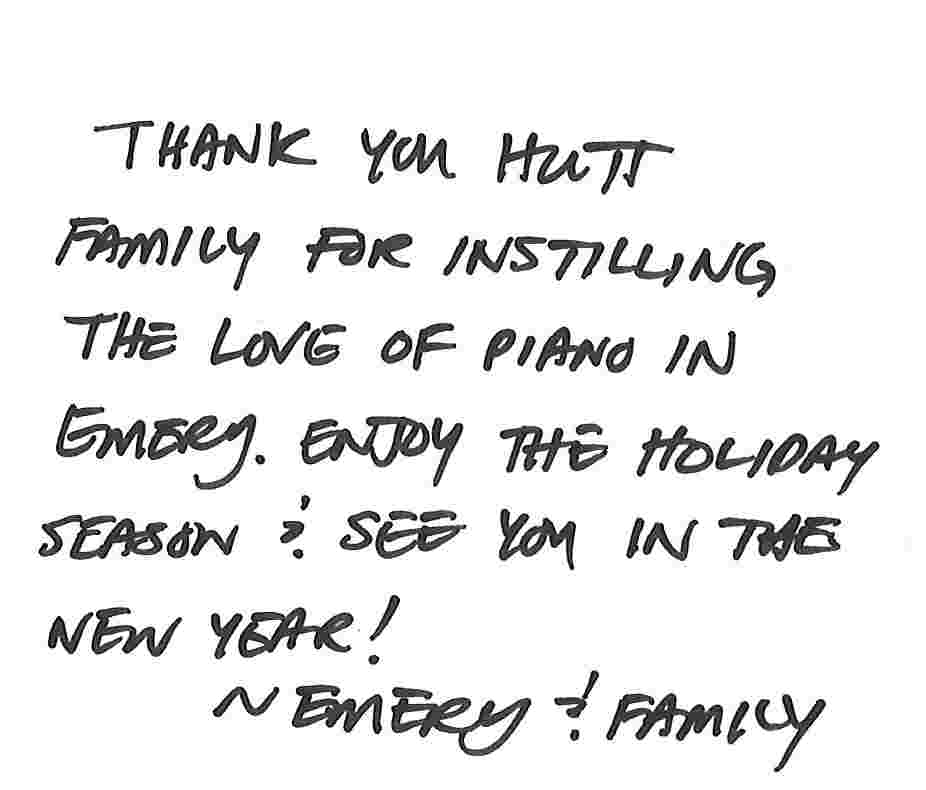 THANK YOU HUTT
FAMILY FOR INSTILLING
THE LOVE OF PIANO IN
EMERY. ENJOY THE HOLIDAY
SEASON & SEE YOU IN THE
NEW YEAR!
~ EMERY & FAMILY